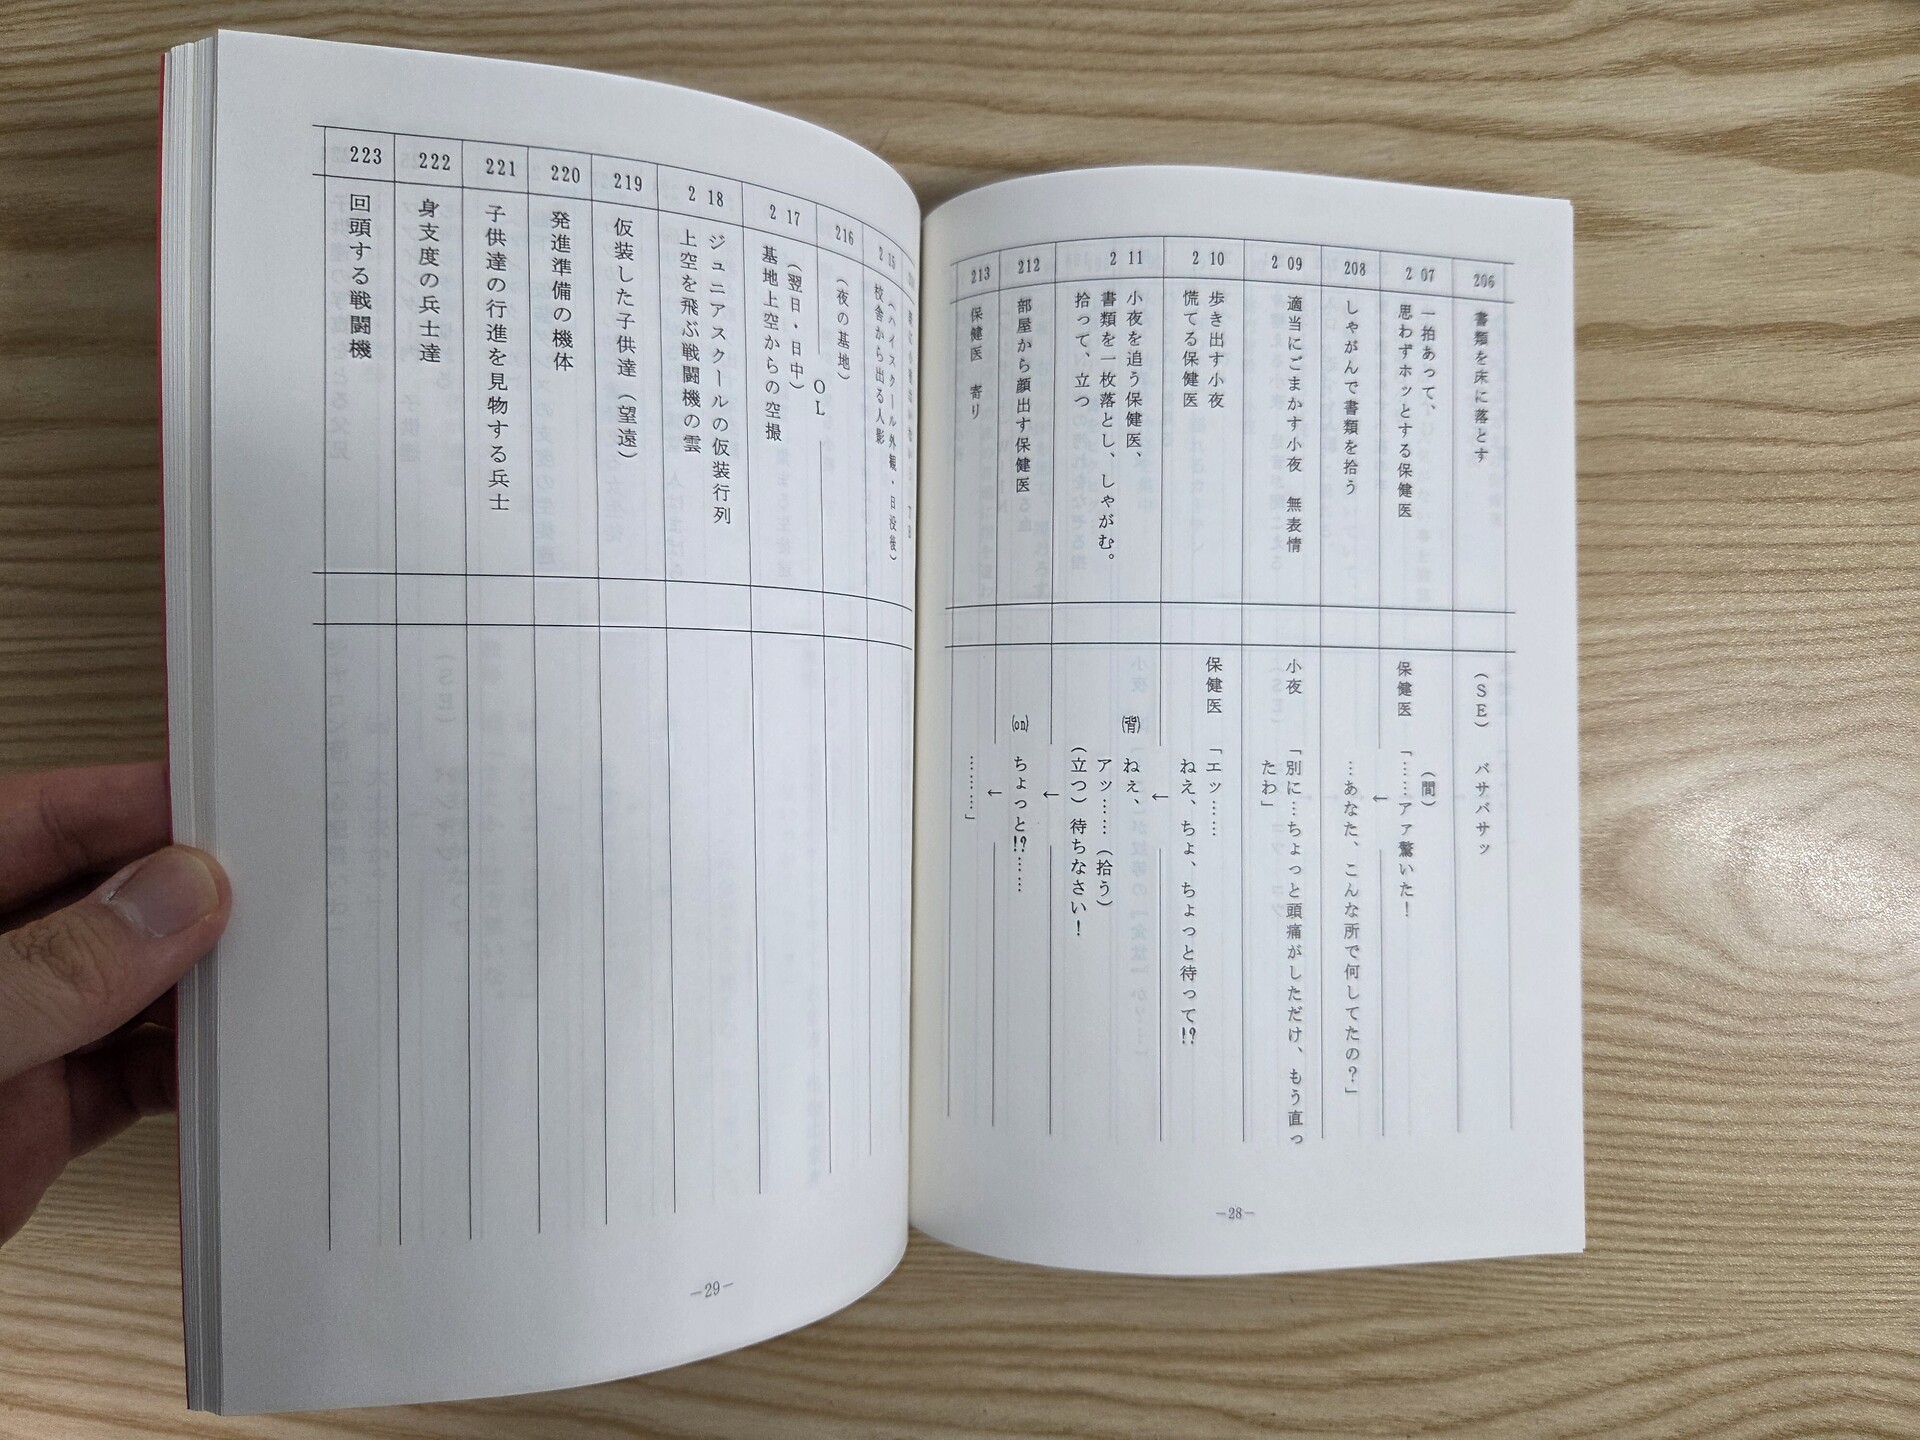 206
書類を床に落とす
(SE) バサバサッ
2 07
一拍あって、
思わずホッとする保健医
(間)
保健医 「……アァ驚いた!
←
208
しゃがんで書類を拾う
…あなた、こんな所で何してたの?」
2 09
適当にごまかす小夜 無表情
小夜 「別に…ちょっと頭痛がしただけ、もう直っ
たわ」
2 10
歩き出す小夜
慌てる保健医
保健医 「エッ……
ねえ、ちょ、ちょっと待って!?
←
2 11
小夜を追う保健医、
書類を一枚落とし、しゃがむ。
拾って、立つ
(背) ねぇ、
アッ……(拾う)
(立つ)待ちなさい!
←
212
部屋から顔出す保健医
(on) ちょっと!?……
←
213
保健医 寄り
………」
-28-
2 15
(ハイスクール外観・日没後)
校舎から出る人影
216
(夜の基地)
OL
2 17
(翌日・日中)
基地上空からの空撮
2 18
ジュニアスクールの仮装行列
上空を飛ぶ戦闘機の雲
219
仮装した子供達(望遠)
220
発進準備の機体
221
子供達の行進を見物する兵士
222
身支度の兵士達
223
回頭する戦闘機
-29-